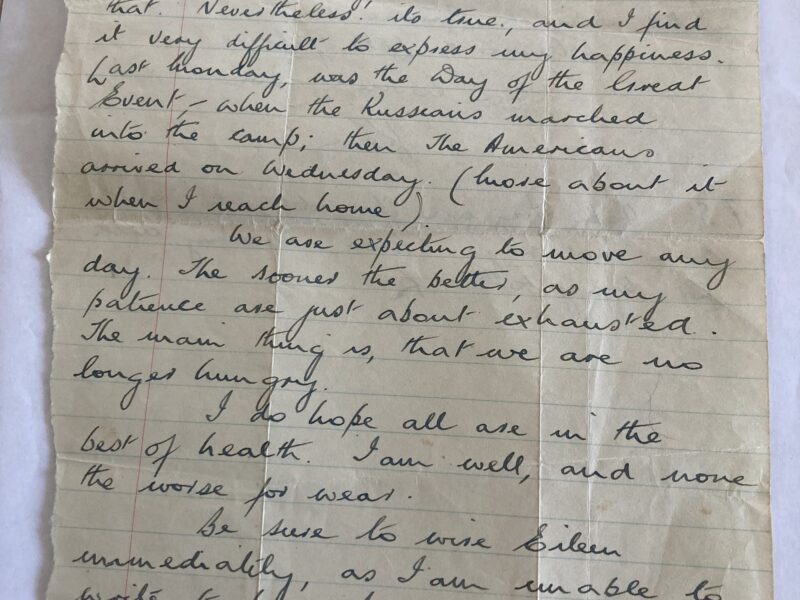 that. Nevertheless! its true, and I find
it very difficult to express my happiness.
Last Monday, was the Day of the Great
Event,- when the Russians marched
into the camp; then The Americans
arrived on Wednesday. (More about it
when I reach home)
We are expecting to move any
day. The sooner the better, as my
patience are just about exhausted.
The main thing is, that we are no
longer hungry.
I do hope all are in the
best of health. I am well, and none
the worse for wear.
Be sure to wire Eileen
immediatily, as I am unable to
write to